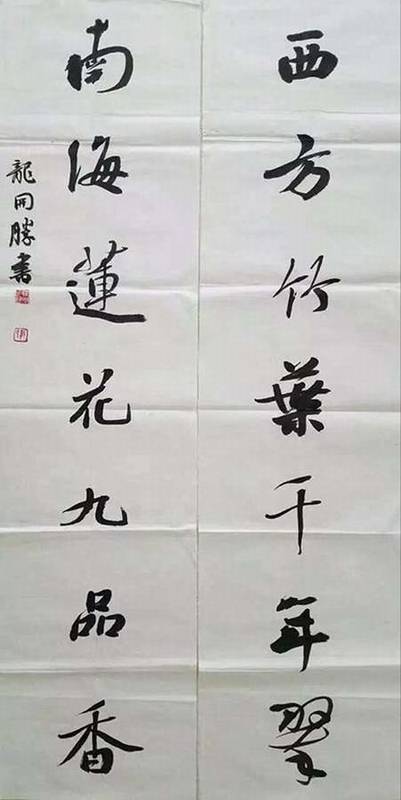 西方竹葉千年翠
南海蓮花九品香
龍開勝書